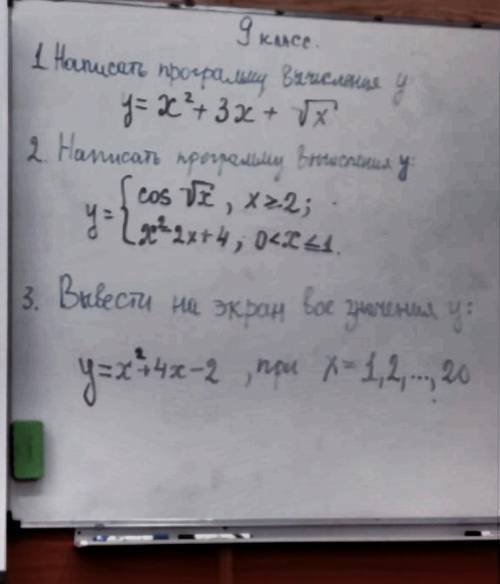 9 класс.
1 Написать программу вычисления y
y = x² + 3x + √x
2. Написать программу вычисления y:
y = { cos √x , x ≥ 2;
x² 2x + 4 , 0 < x ≤ 1.
3. Вывести на экран все значения y:
y = x² + 4x - 2 , при x = 1, 2, ..., 20